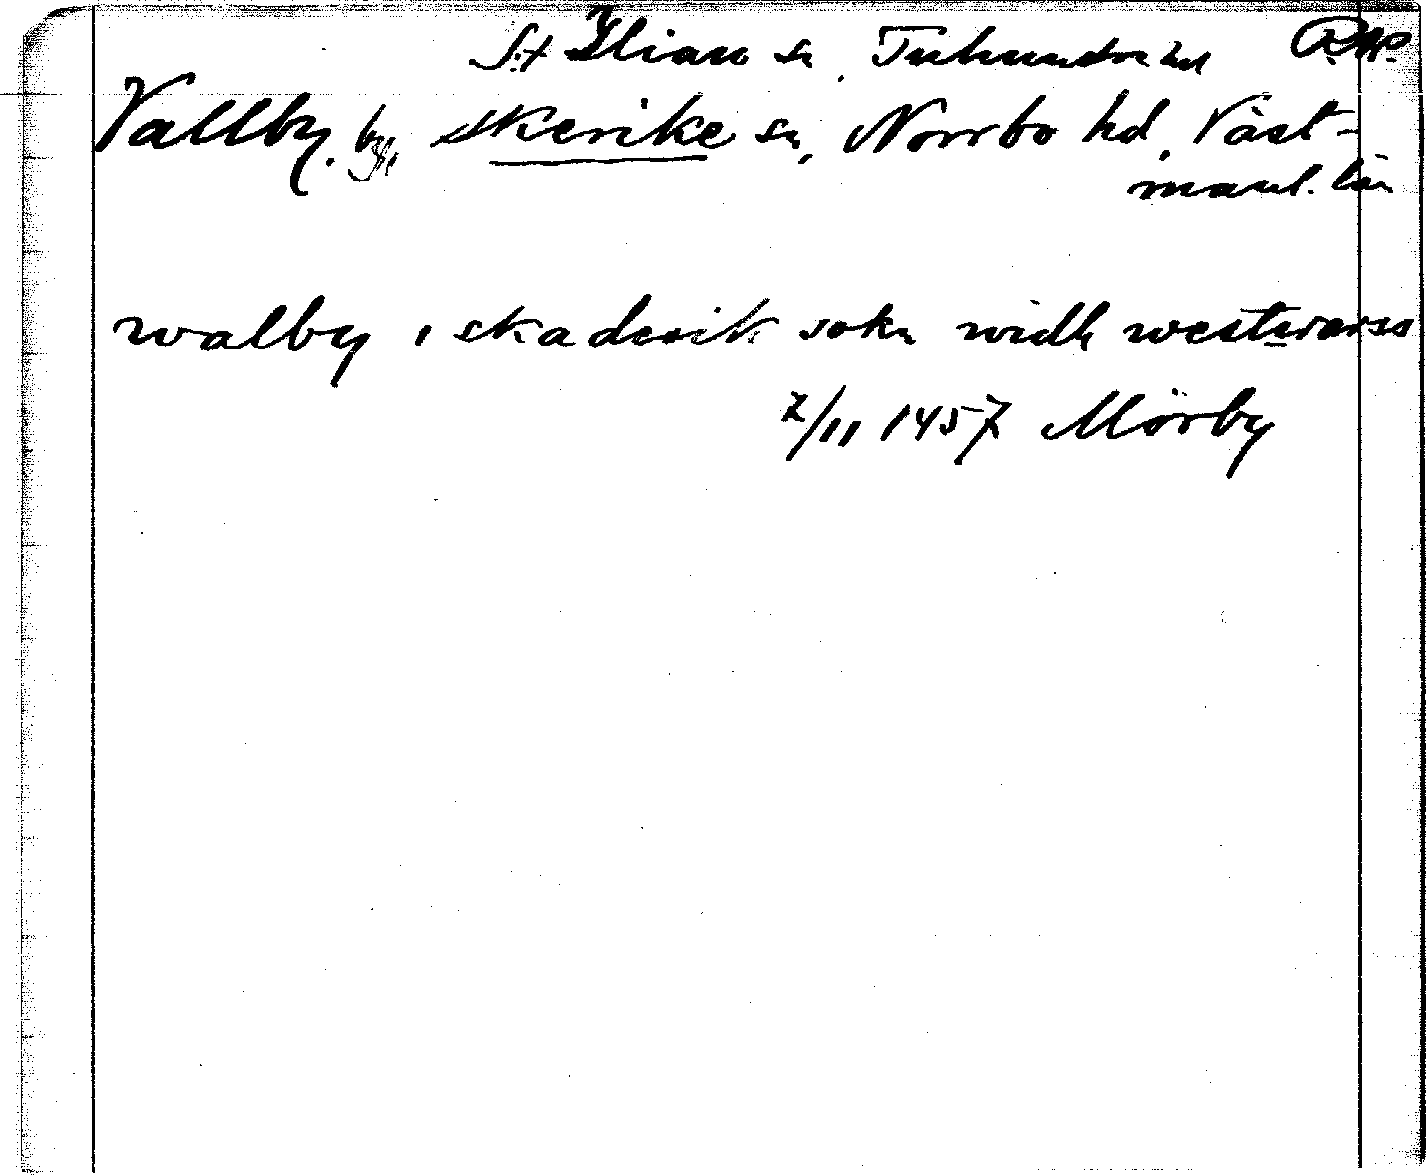 St Ilian sn, Tuhundra hd RAp.
Vallby, by, Skerike sn, Norrbo hd, Väst-
manl. län
walby i skaderik sokn widh westwarsa
2/11 1457 Mörby